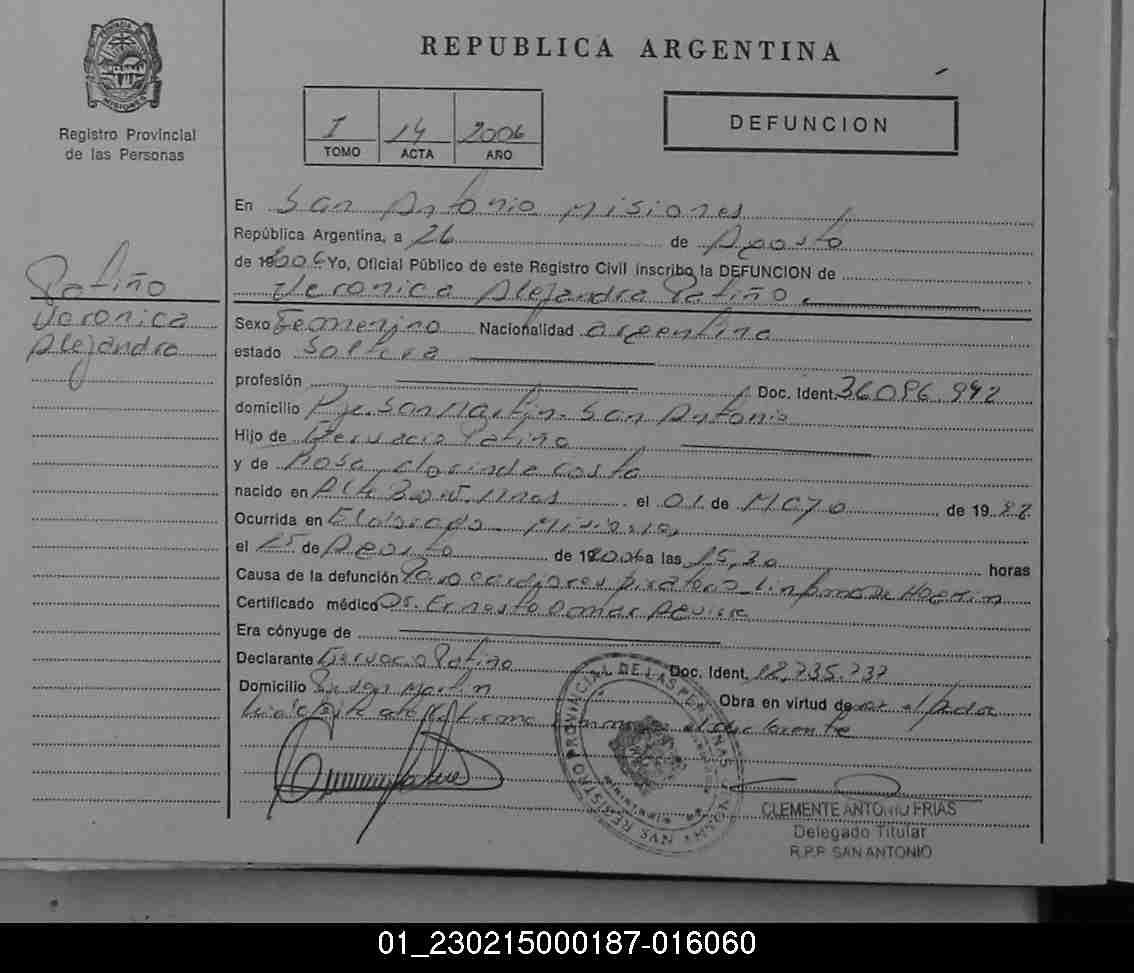 REPUBLICA ARGENTINA
PROVINCIA DE MISIONES
Registro Provincial
de las Personas
I 14 2006
TOMO ACTA AÑO
DEFUNCION
En San Antonio Misiones
República Argentina, a 26 de Agosto
de 192006 Yo, Oficial Público de este Registro Civil inscribo la DEFUNCION de
Veronica Alejandra Patiño.
Patiño
Veronica
Alejandra
Sexo Femenino Nacionalidad argentina
estado Soltera
profesión Doc. Ident. 36096.992
domicilio Pje. San Martin. San Antonio
Hijo de Gervacio Patiño
y de Rosa Clorinda Costa
nacido en el 01 de Mayo de 19
Ocurrida en Eldorado Misiones
el 25 de Agosto de 192006 a las 15,30 horas
Causa de la defunción Paro cardiorespiratorio Linfoma De
Certificado médico Dr. Ernesto Omar
Era cónyuge de
Declarante Gervacio Patiño Doc. Ident. 12.735.737
Domicilio San Martin Obra en virtud de ser el padre
firma el declarante
CLEMENTE ANTONIO FRIAS
Delegado Titular
R.P.P. SAN ANTONIO
01_230215000187-016060